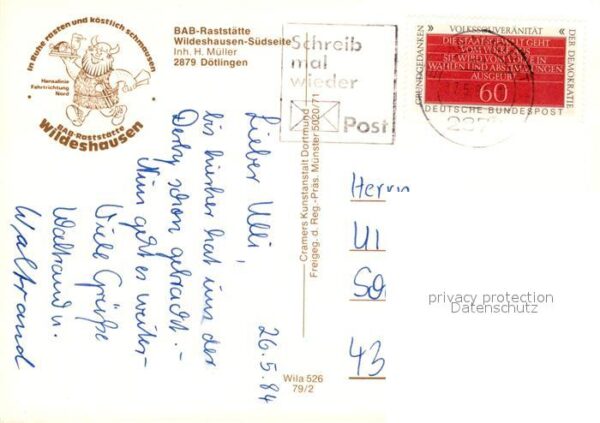 In Ruhe rasten und köstlich schmausen
Hansalinie
Fahrtrichtung
Nord
BAB-Raststätte
Wildeshausen
BAB-Raststätte
Wildeshausen-Südseite
Inh. H. Müller
2879 Dötlingen
Schreib
mal
wieder
Post
VOLKSSOUVERÄNITÄT
GRUNDGEDANKEN
DER DEMOKRATIE
DIE STAATSGEWALT GEHT
VOM VOLKE AUS
SIE WIRD VOM VOLKE IN
WAHLEN UND ABSTIMMUNGEN
AUSGEÜBT
60
DEUTSCHE BUNDESPOST
26.5.84
Lieber Ulli,
bis hierher hat uns der
Derby schon gebracht. -
Nun geht es weiter-
Viele Grüße
Waltraud u.
Waltraud
Cramers Kunstanstalt Dortmund
Freigeg. d. Reg.-Präs. Münster 5020/71
Wila 526
79/2
Herrn
Ul
43
privacy protection
Datenschutz